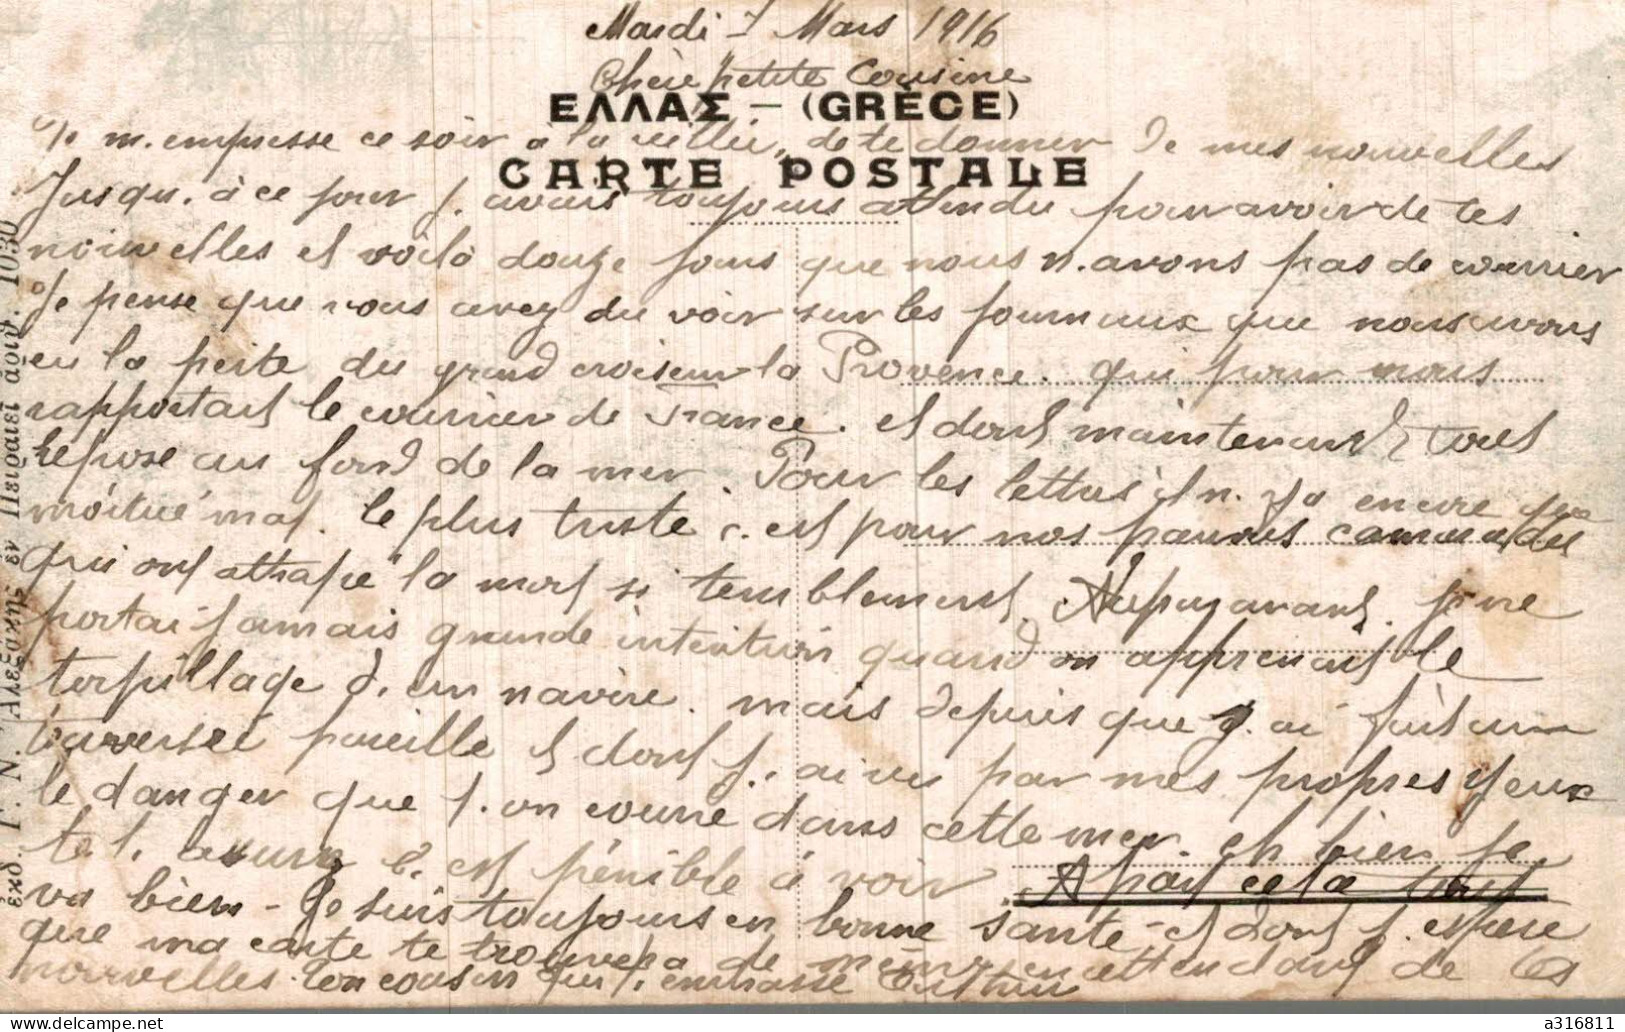 Mardi 7 Mars 1916
Chère petite Cousine
ΕΛΛΑΣ — (GRÈCE)
Je m'empresse ce soir à la veillée, de te donner de mes nouvelles
CARTE POSTALE
Jusqu'à ce jour j'avais toujours attendu pour avoir de tes
nouvelles et voilà douze jours que nous n'avons pas de courrier
Je pense que vous avez du voir sur les journaux que nous avons
eu la perte du grand croiseur la Provence. qui pour nous
rapportait le courrier de France. et dont maintenant tout
repose au fond de la mer. Pour les lettres il n'y a encore que
moitié mal. le plus triste c'est pour nos pauvres camarades
qui ont attrapé la mort si terriblement. Auparavant je ne
portai jamais grande intention quand on apprenait le
torpillage d'un navire. mais depuis que j'ai fait une
traversée pareille et dont j'ai vu par mes propres yeux
le danger que l'on coure dans cette mer. eh bien je
te l'assure c'est pénible à voir. A part cela tout
va bien - Je suis toujours en bonne santé - et dont j'espère
que ma carte te trouvera de même en attendant de tes
nouvelles. Ton cousin qui t'embrasse Arthur
εκδ. Γ. Ν. Αλεξάκης εν Πειραιεί αριθ. 1030
a316811